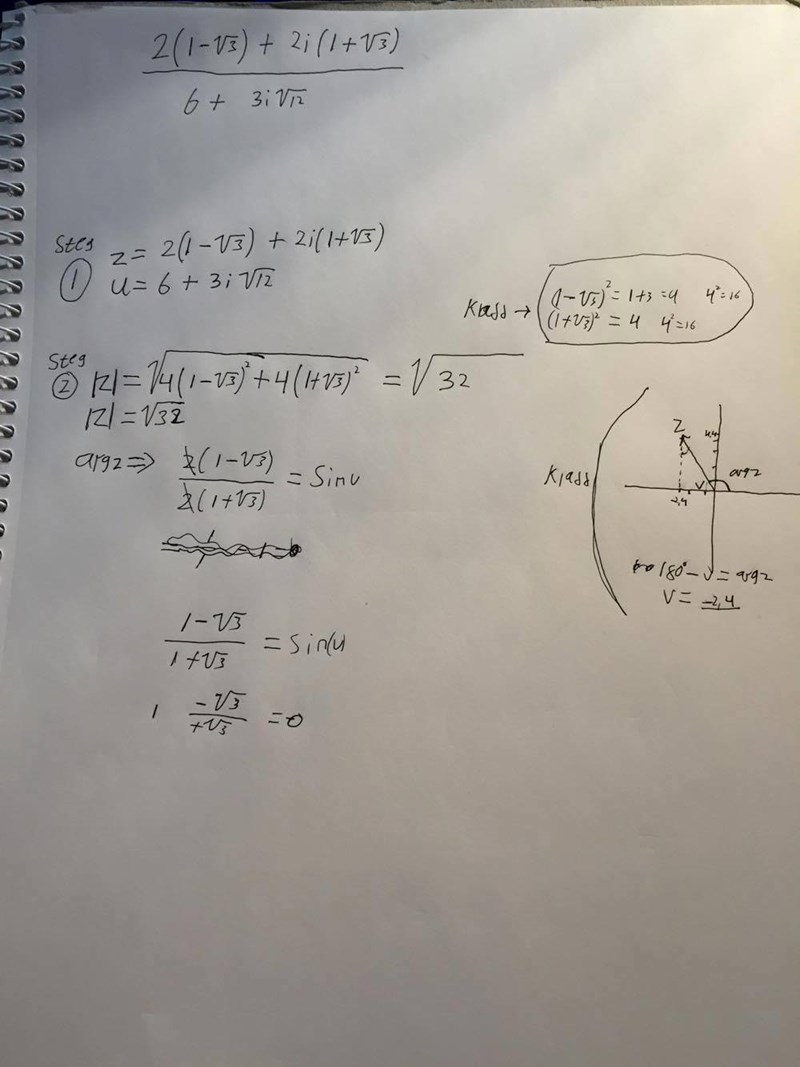 2(1-√3) + 2i(1+√3)
6 + 3i√12
Steg
① z = 2(1-√3) + 2i(1+√3)
u = 6 + 3i√12
Kladd → (1-√3)² = 1+3 = 4 4² = 16
(1+√3)² = 4 4² = 16
Steg
② |z| = √4(1-√3)² + 4(1+√3)² = √32
|z| = √32
arg z ⇒ 2(1-√3)
2(1+√3) = Sin v
Kladd
z
4,4
arg z
v
-2,4
180° - v = arg z
v = -2,4
1-√3
1+√3 = Sin(v)
1 -√3
+√3 = 0